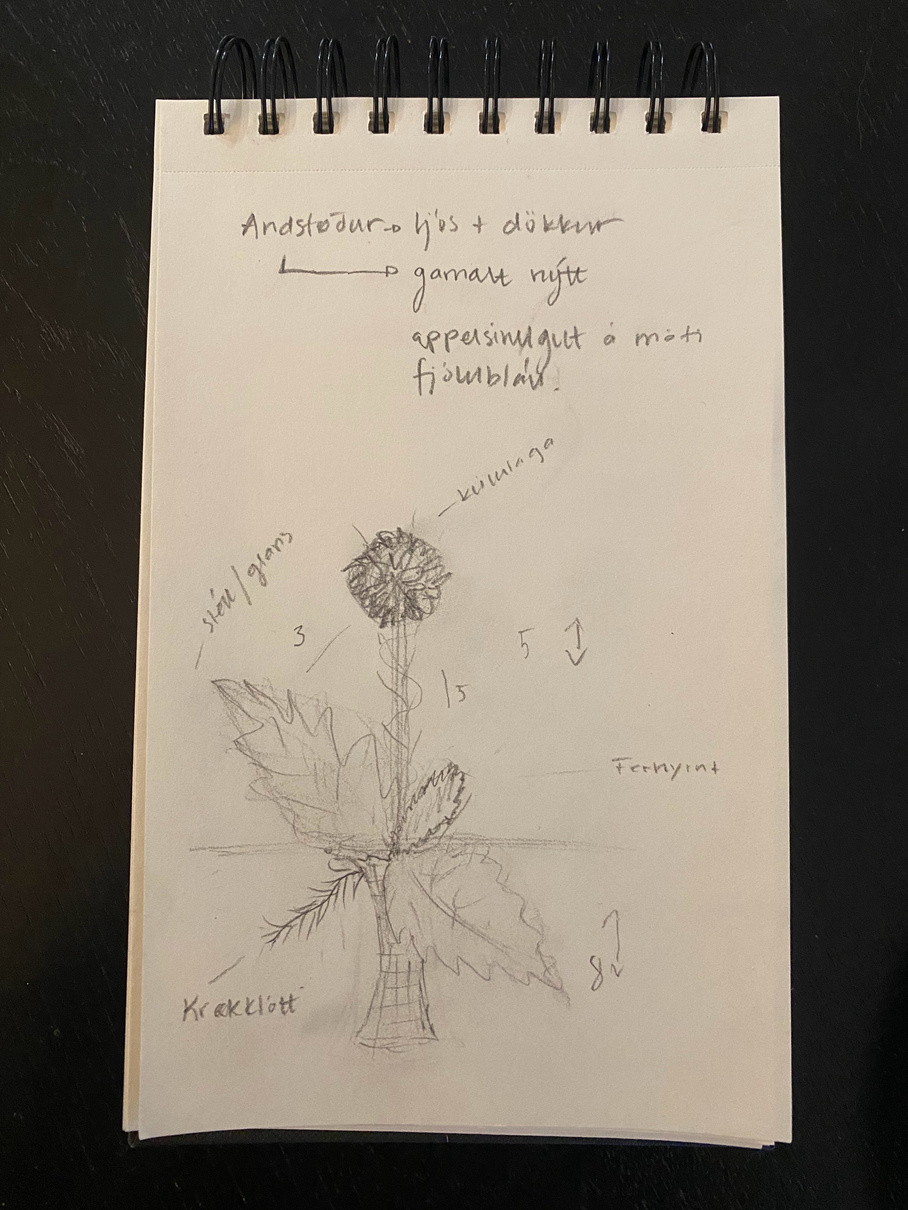 Andstøður → ljós + dökkur
→ gamalt nýtt
appelsínugult á móti
fjólubláu.
kúlulaga
slétt/glans
3
5
15
8
Kræklótt